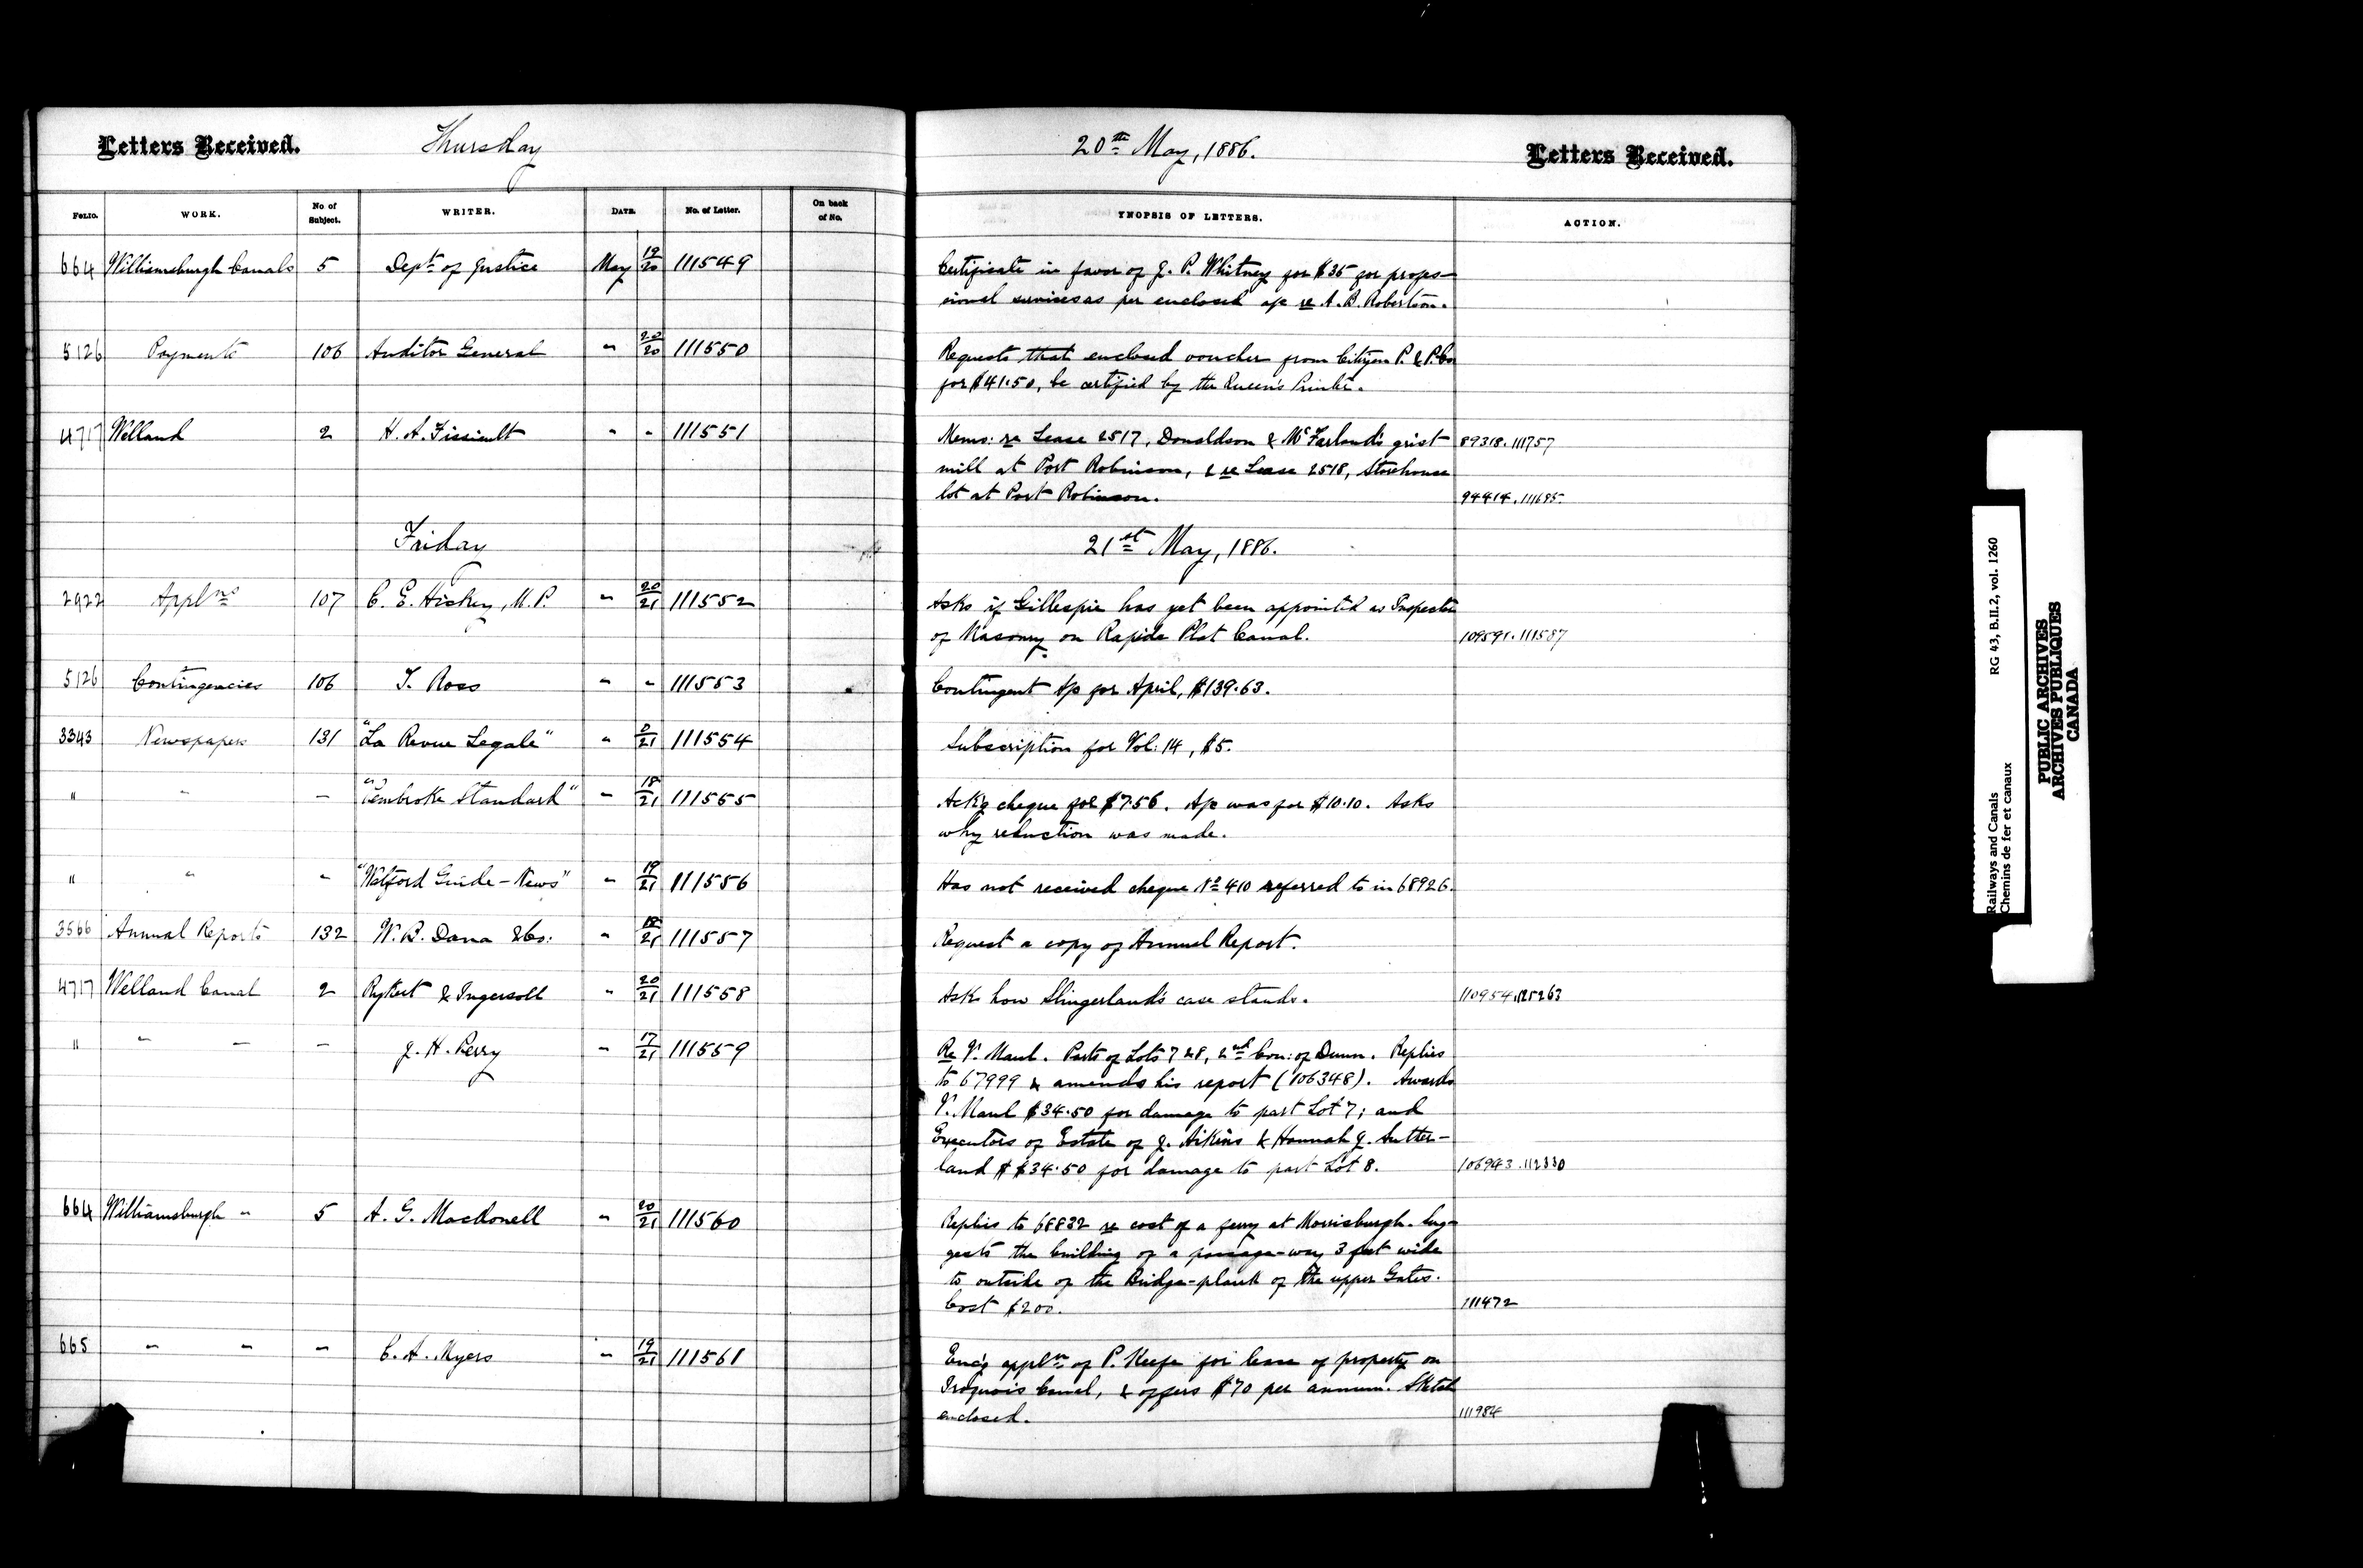 Letters Received. Thursday 20th May, 1886. Letters Received.
FOLIO. WORK. No of Subject. WRITER. DATE. No. of Letter. On back of No. YNOPSIS OF LETTERS. ACTION.
664 Williamsburgh Canals 5 Dept. of Justice May 19/20 111549 Certificate in favor of J. P. Whitney for $35 for profes-
sional services as per enclosed a/c re A. B. Robertson.
5126 Payments 106 Auditor General " 20/20 111550 Requests that enclosed voucher from Citizen P. & P. Co
for $41.50, be certified by the Queen's Printer.
4717 Welland 2 H. A. Fissiault " " 111551 Memo: re Lease 2517, Donaldson & McFarland's grist 89318.111757
mill at Port Robinson, & re Lease 2518, Storehouse
lot at Port Robinson. 94414.111695.
Friday 21st May, 1886.
2922 Appl'ns 107 C. E. Hickey, M.P. " 20/21 111552 Asks if Gillespie has yet been appointed as Inspector
of Masonry on Rapide Plat Canal. 109591.111587
5126 Contingencies 106 T. Ross " " 111553 Contingent A/c for April, $139.63.
3343 Newspapers 131 "La Revue Legale" " 2/21 111554 Subscription for Vol: 14, $5.
" " – "Pembroke Standard" " 18/21 111555 Ack'g cheque for $7.56. A/c was for $10.10. Asks
why reduction was made.
" " " "Watford Guide-News" " 19/21 111556 Has not received cheque No 410 referred to in 68926.
3566 Annual Reports 132 W. B. Dana & Co: " 18/21 111557 Request a copy of Annual Report.
4717 Welland Canal 2 Rykert & Ingersoll " 20/21 111558 Asks how Slingerland's case stands. 110954.125263
" " " – J. H. Perry " 17/21 111559 Re V. Maul. Parts of Lots 7 & 8, 2nd Con: of Dunn. Replies
to 67999 & amends his report (106348). Awards
V. Maul $34.50 for damage to part Lot 7; and
Executors of Estate of J. Aikins & Hannah J. Sutter-
land $ $34.50 for damage to part Lot 8. 106943.112330
664 Williamsburgh " 5 A. G. Macdonell " 20/21 111560 Replies to 68832 re cost of a ferry at Morrisburgh. Sug-
gests the building of a passage-way 3 feet wide
to outside of the Bridge-plank of the upper Gates.
Cost $200. 111472
665 " " " C. A. Myers " 19/21 111561 Enc'g appl'n of P. Keefe for lease of property on
Iroquois Canal, & offers $70 per annum. Sketch
enclosed. 111984
Railways and Canals RG 43, B.II.2, vol. 1260
Chemins de fer et canaux
PUBLIC ARCHIVES
ARCHIVES PUBLIQUES
CANADA